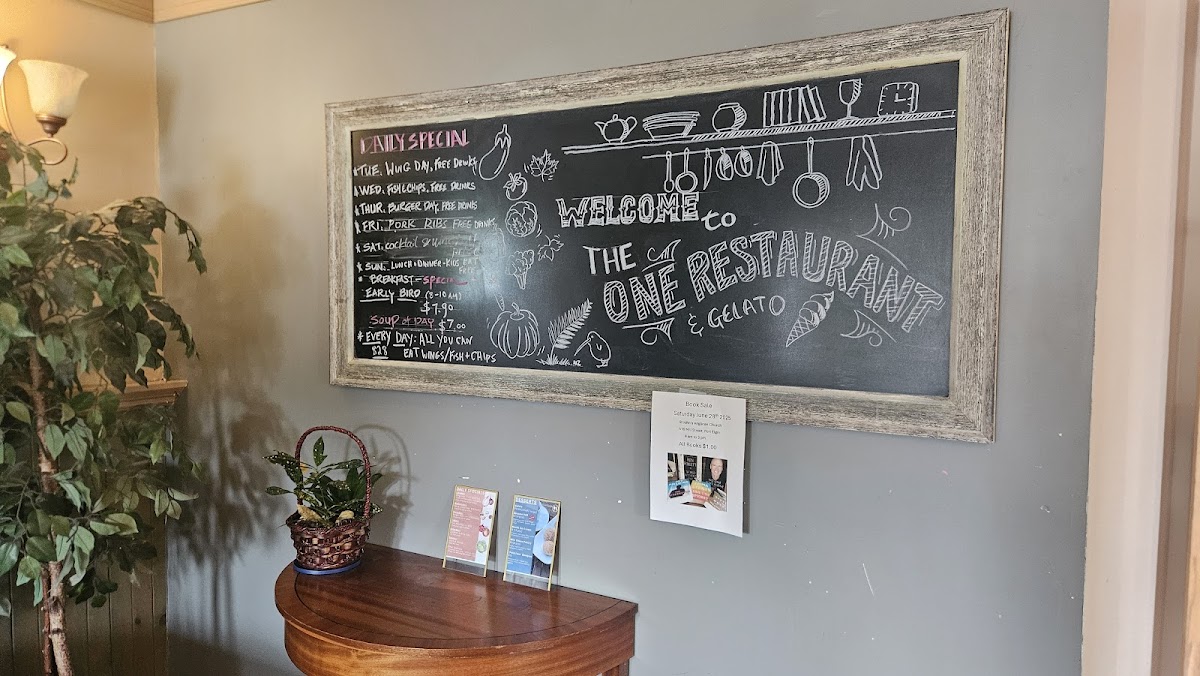 DAILY SPECIAL
TUE. WING DAY, FREE DRINKS
WED. FISH & CHIPS, FREE DRINKS
THUR. BURGER DAY, FREE DRINKS
FRI. PORK RIBS FREE DRINKS
SAT. COCKTAIL
SUN. LUNCH & DINNER - KIDS EAT
FREE
BREAKFAST - SPECIAL
EARLY BIRD (8-10AM)
$7.90
SOUP of DAY $7.00
EVERY DAY: ALL YOU CAN
$28 EAT WINGS/FISH + CHIPS
WELCOME to
THE ONE RESTAURANT
& GELATO
Book Sale
Saturday June 28th 2025
All Books $1.00